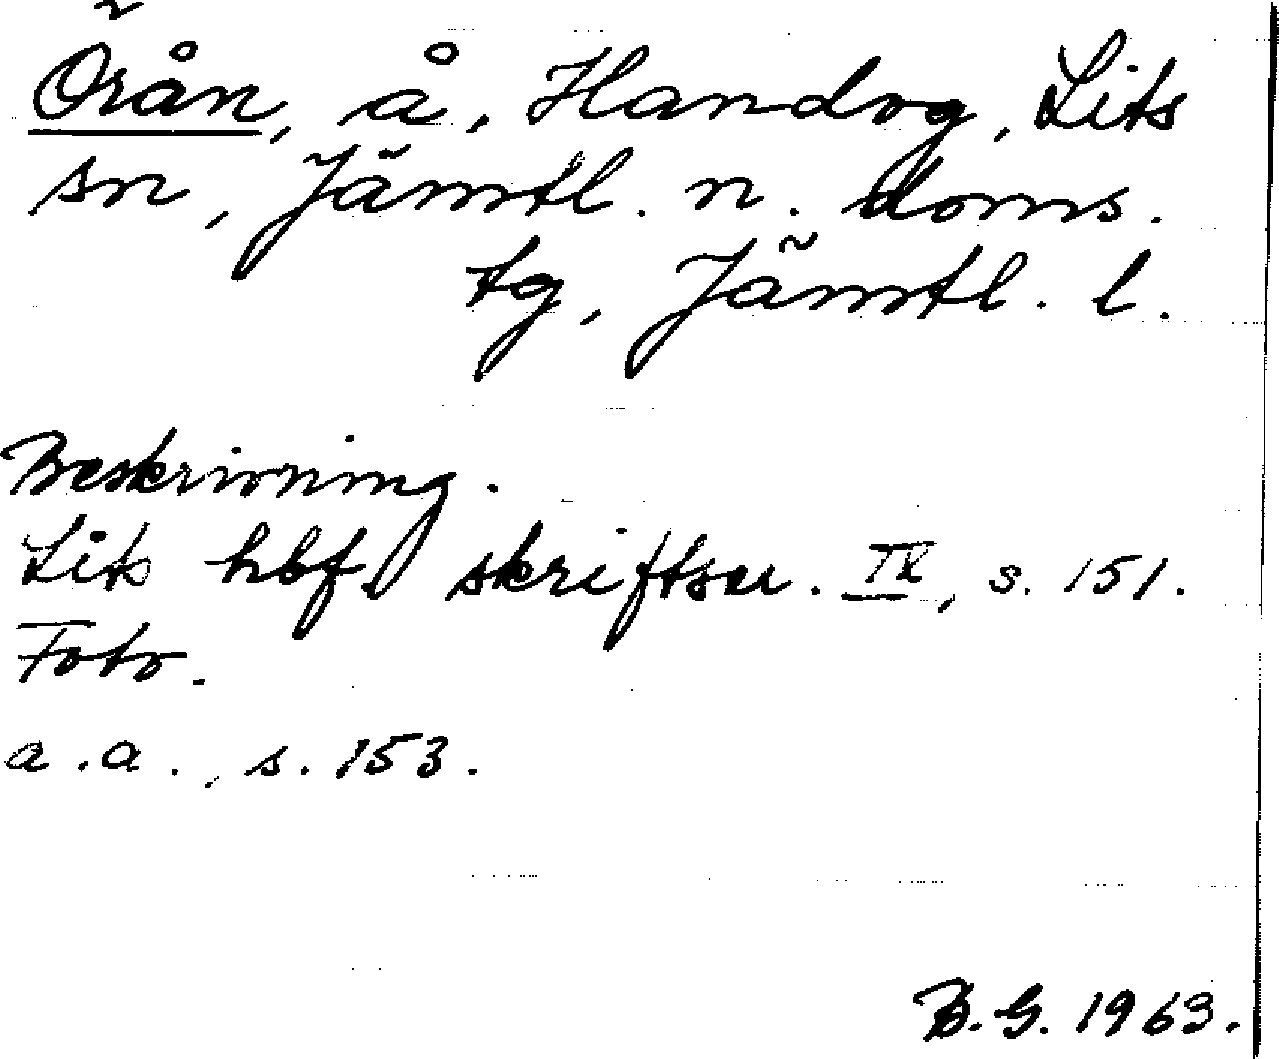 Örån, å, Handog, Lits
sn, Jämtl. n. doms.
tg, Jämtl. l.
Beskrivning.
Lits hbf. skriftser. IV, s. 151.
Foto.
a.a., s. 153.
B.G. 1963.